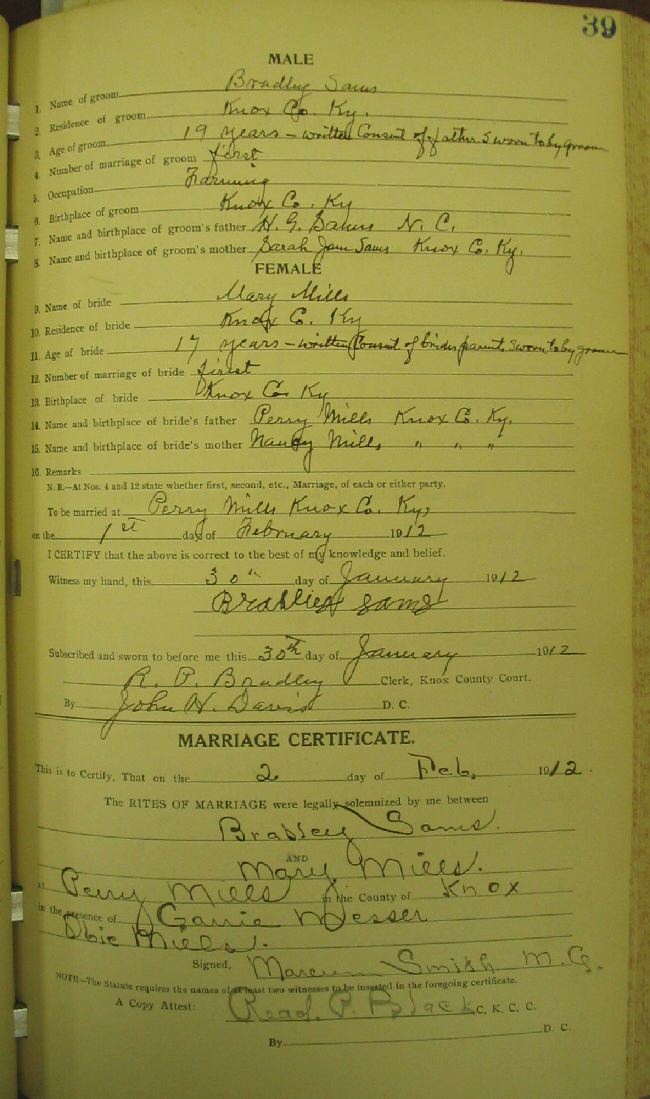 39
MALE
1. Name of groom Bradley Sams
2. Residence of groom Knox Co. Ky.
3. Age of groom 19 years - written Consent of father sworn to by groom
4. Number of marriage of groom first
5. Occupation Farming
6. Birthplace of groom Knox Co. Ky
7. Name and birthplace of groom's father H. G. Sams N. C.
8. Name and birthplace of groom's mother Sarah Jane Sams Knox Co. Ky.
FEMALE
9. Name of bride Mary Mills
10. Residence of bride Knox Co. Ky
11. Age of bride 17 years - written Consent of brides parents sworn to by groom
12. Number of marriage of bride first
13. Birthplace of bride Knox Co. Ky
14. Name and birthplace of bride's father Perry Mills Knox Co. Ky.
15. Name and birthplace of bride's mother Nancy Mills, " " "
16. Remarks
N. B.—At Nos. 4 and 12 state whether first, second, etc., Marriage, of each or either party.
To be married at Perry Mills Knox Co. Ky,
on the 1st day of February 1912
I CERTIFY that the above is correct to the best of my knowledge and belief.
Witness my hand, this 30th day of January 1912
Sams
Subscribed and sworn to before me this 30th day of January 1912
R. P. Bradley Clerk, Knox County Court.
By John H. Davis D. C.
MARRIAGE CERTIFICATE.
This is to Certify, That on the 2 day of Feb, 1912.
The RITES OF MARRIAGE were legally solemnized by me between
Bradley Sams.
AND
Mary Mills.
at Perry Mills in the County of Knox
in the presence of Garrie Messer
Obie Mills.
Signed, Marcum Smith M. G.
NOTE—The Statute requires the names of at least two witnesses to be inserted in the foregoing certificate.
A Copy Attest: Read P. Black C. K. C. C.
By D. C.